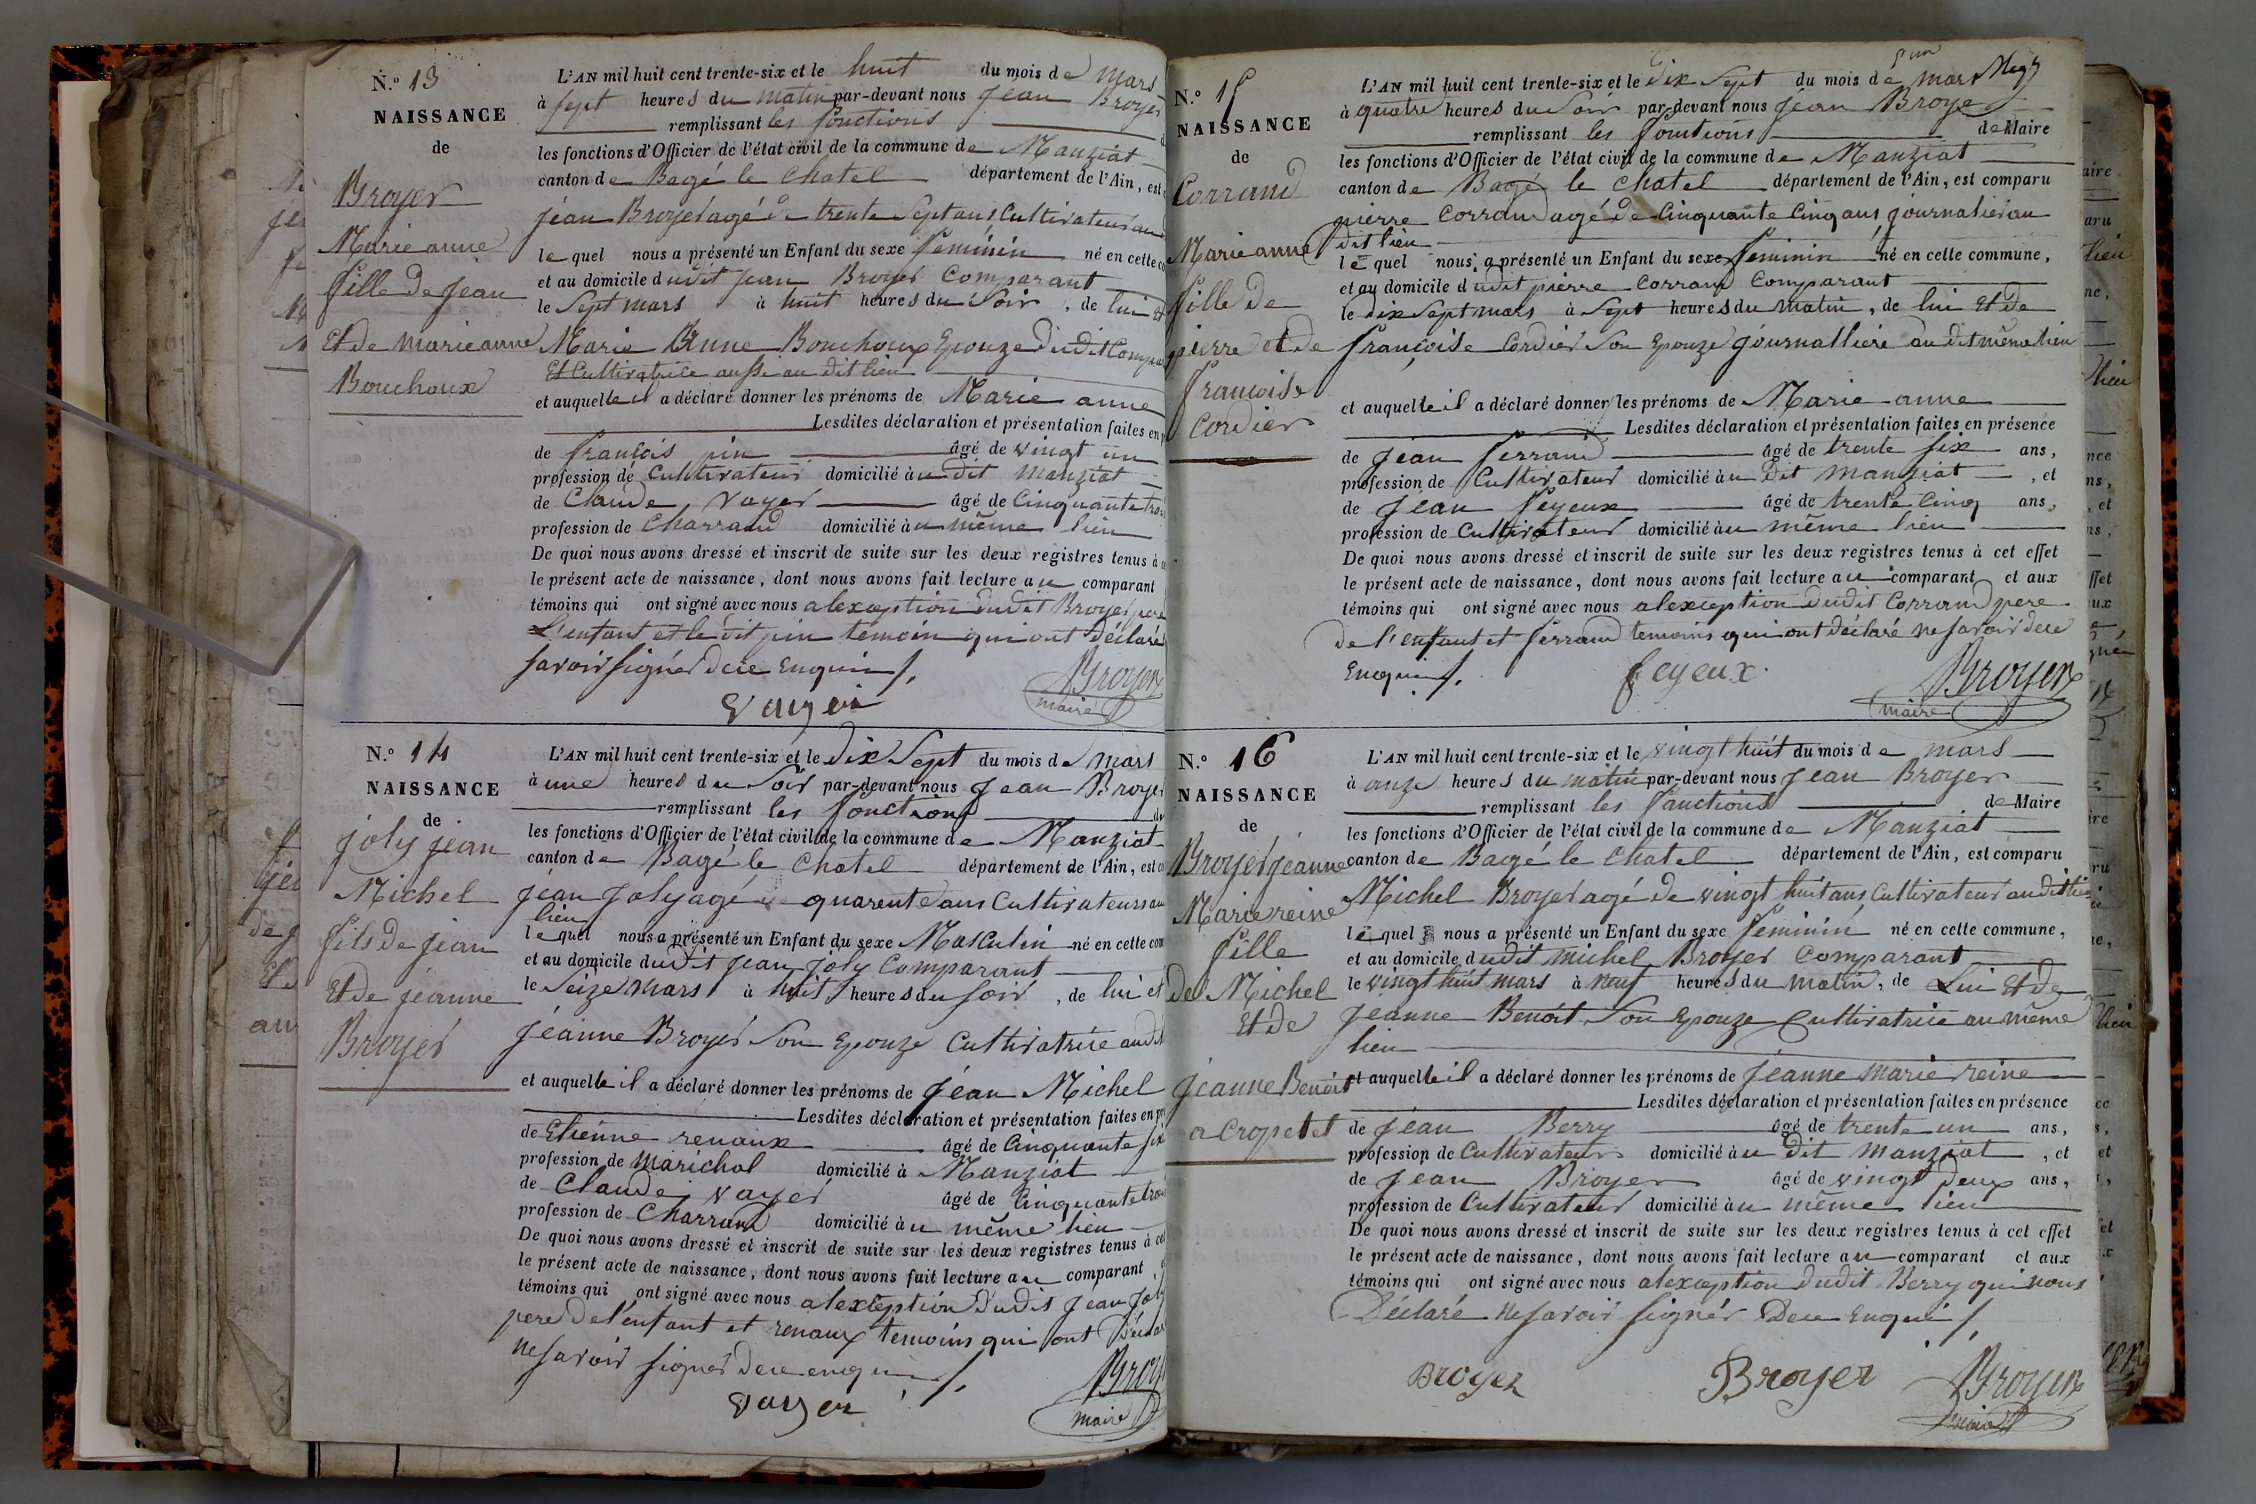 N.° 13
NAISSANCE
de
Broyer
Marie anne
fille de Jean
Et de marie anne
Bouchoux
L'AN mil huit cent trente-six et le huit du mois de mars
à sept heures du matin par-devant nous Jean Broyer
remplissant les fonctions
les fonctions d'Officier de l'état civil de la commune de Manziat
canton de Bagé le Chatel département de l'Ain, est
Jean Broyer agé de trente Sept ans Cultivateur au
le quel nous a présenté un Enfant du sexe feminin né en cette
et au domicile dudit jean Broyer Comparant
le Sept mars à huit heures du Soir, de lui Et
Marie Anne Bouchoux Epouze dudit
Et Cultivatrice aussi au dit lieu
et auquelle il a déclaré donner les prénoms de Marie anne
Lesdites déclaration et présentation faites en
de françois pin âgé de vingt un
profession de Cultivateur domicilié àu dit manziat
de Claude vayer âgé de Cinquante trois
profession de Charrand domicilié àu même lieu
De quoi nous avons dressé et inscrit de suite sur les deux registres tenus à
le présent acte de naissance, dont nous avons fait lecture au comparant
témoins qui ont signé avec nous alexception dudit Broyer pere
L'enfant et le dit pin témoin qui ont déclaré
savoir signér dece Enquis /.
vayer
Broyer
maire
N.° 14
NAISSANCE
de
joly jean
Michel
fils de jean
Et de jeanne
Broyer
L'AN mil huit cent trente-six et le Dix Sept du mois de mars
à une heures du Soir par-devant nous Jean Broyer
remplissant les fonctions
les fonctions d'Officier de l'état civil de la commune de Manziat
canton de Bagé le Chatel département de l'Ain, est
jean Joly agé de quarente ans Cultivateur au
lieu
le quel nous a présenté un Enfant du sexe Masculin né en cette
et au domicile dudit Jean joly Comparant
le Seize mars à huit heures du soir, de lui et
Jeanne Broyer Son Epouze Cultivatrice audit
et auquelle il a déclaré donner les prénoms de jean Michel
Lesdites déclaration et présentation faites en
de Etienne renaux âgé de Cinquante six
profession de marichal domicilié à Manziat
de Claude vayer âgé de Cinquante trois
profession de Charrand domicilié àu même lieu
De quoi nous avons dressé et inscrit de suite sur les deux registres tenus à cet
le présent acte de naissance, dont nous avons fait lecture au comparant
témoins qui ont signé avec nous alexception dudit Jean Joly
pere del'enfant et renaux temoins qui ont
ne savoir signer dece enquis /.
vayer
Broyer
maire
N.° 15
NAISSANCE
de
Corrand
Marie anne
fille de
pierre et de
francoise
Cordier
L'AN mil huit cent trente-six et le dix Sept du mois de mars
à quatre heures du Soir par-devant nous Jean Broyer
remplissant les fonctions de Maire
les fonctions d'Officier de l'état civil de la commune de Manziat
canton de Bagé le chatel département de l'Ain, est comparu
pierre Corrand agé de Cinquante Cinq ans journalier au
dit lieu
le quel nous a présenté un Enfant du sexe feminin né en cette commune,
et au domicile dudit pierre Corrand Comparant
le dix Sept mars à Sept heures du matin, de lui Et de
françoise Cordier Son Epouze journalliere au dit même lieu
et auquelle il a déclaré donner les prénoms de Marie anne
Lesdites déclaration et présentation faites en présence
de jean ferrand âgé de trente six ans,
profession de Cultivateur domicilié àu Dit manziat, et
de jean feyeux âgé de trente Cinq ans,
profession de Cultivateur domicilié àu même lieu
De quoi nous avons dressé et inscrit de suite sur les deux registres tenus à cet effet
le présent acte de naissance, dont nous avons fait lecture au comparant et aux
témoins qui ont signé avec nous alexception dudit Corrand pere
de l'enfant et ferrand temoins qui ont déclaré ne savoir dece
Enquis /.
feyeux
Broyer
maire
N.° 16
NAISSANCE
de
Broyer jeanne
Marie reine
fille
de Michel
Et de
jeanne Benoit
a Cropetet
L'AN mil huit cent trente-six et le vingt huit du mois de mars
à onze heures du matin par-devant nous Jean Broyer
remplissant les fonctions de Maire
les fonctions d'Officier de l'état civil de la commune de Manziat
canton de Bagé le Chatel département de l'Ain, est comparu
Michel Broyer agé de vingt huit ans, Cultivateur audit lieu
le quel nous a présenté un Enfant du sexe feminin né en cette commune,
et au domicile dudit michel Broyer Comparant
le vingt huit mars à neuf heures du matin, de Lui Et de
jeanne Benoit Son Epouze Cultivatrice au même
lieu
et auquelle il a déclaré donner les prénoms de jeanne marie reine
Lesdites déclaration et présentation faites en présence
de jean Berry âgé de trente un ans,
profession de Cultivateur domicilié àu dit manziat, et
de Jean Broyer âgé de vingt deux ans,
profession de Cultivateur domicilié àu même lieu
De quoi nous avons dressé et inscrit de suite sur les deux registres tenus à cet effet
le présent acte de naissance, dont nous avons fait lecture au comparant et aux
témoins qui ont signé avec nous alexception dudit Berry qui nous
Déclaré ne savoir signér Dece Enquis /.
Broyer
Broyer
Broyer
maire